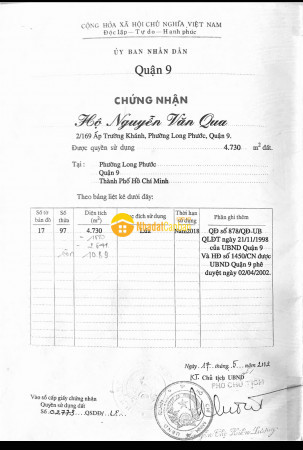 CỘNG HÒA XÃ HỘI CHỦ NGHĨA VIỆT NAM
Độc lập - Tự do - Hạnh phúc
ỦY BAN NHÂN DÂN
Quận 9
CHỨNG NHẬN
Hộ Nguyễn Văn Qua
2/169 Ấp Trường Khánh, Phường Long Phước, Quận 9.
Được quyền sử dụng 4.730 m² đất.
Tại : Phường Long Phước
Quận 9
Thành Phố Hồ Chí Minh
Theo bảng liệt kê dưới đây:
Số tờ bản đồ Số thửa Diện tích (m²) đích sử dụng Thời hạn sử dụng Phần ghi thêm
17 97 4.730 Lúa Năm2018 QĐ số 878/QĐ-UB
QLĐT ngày 21/11/1998
của UBND Quận 9
Và HĐ số 1450/CN được
UBND Quận 9 phê
duyệt ngày 02/04/2002.
Ngày 17 tháng 5 năm 2002
KT. Chủ tịch UBND
PHÓ CHỦ TỊCH
Vào sổ cấp giấy chứng nhận
Quyền sử dụng đất
Số 02773 QSDĐ/